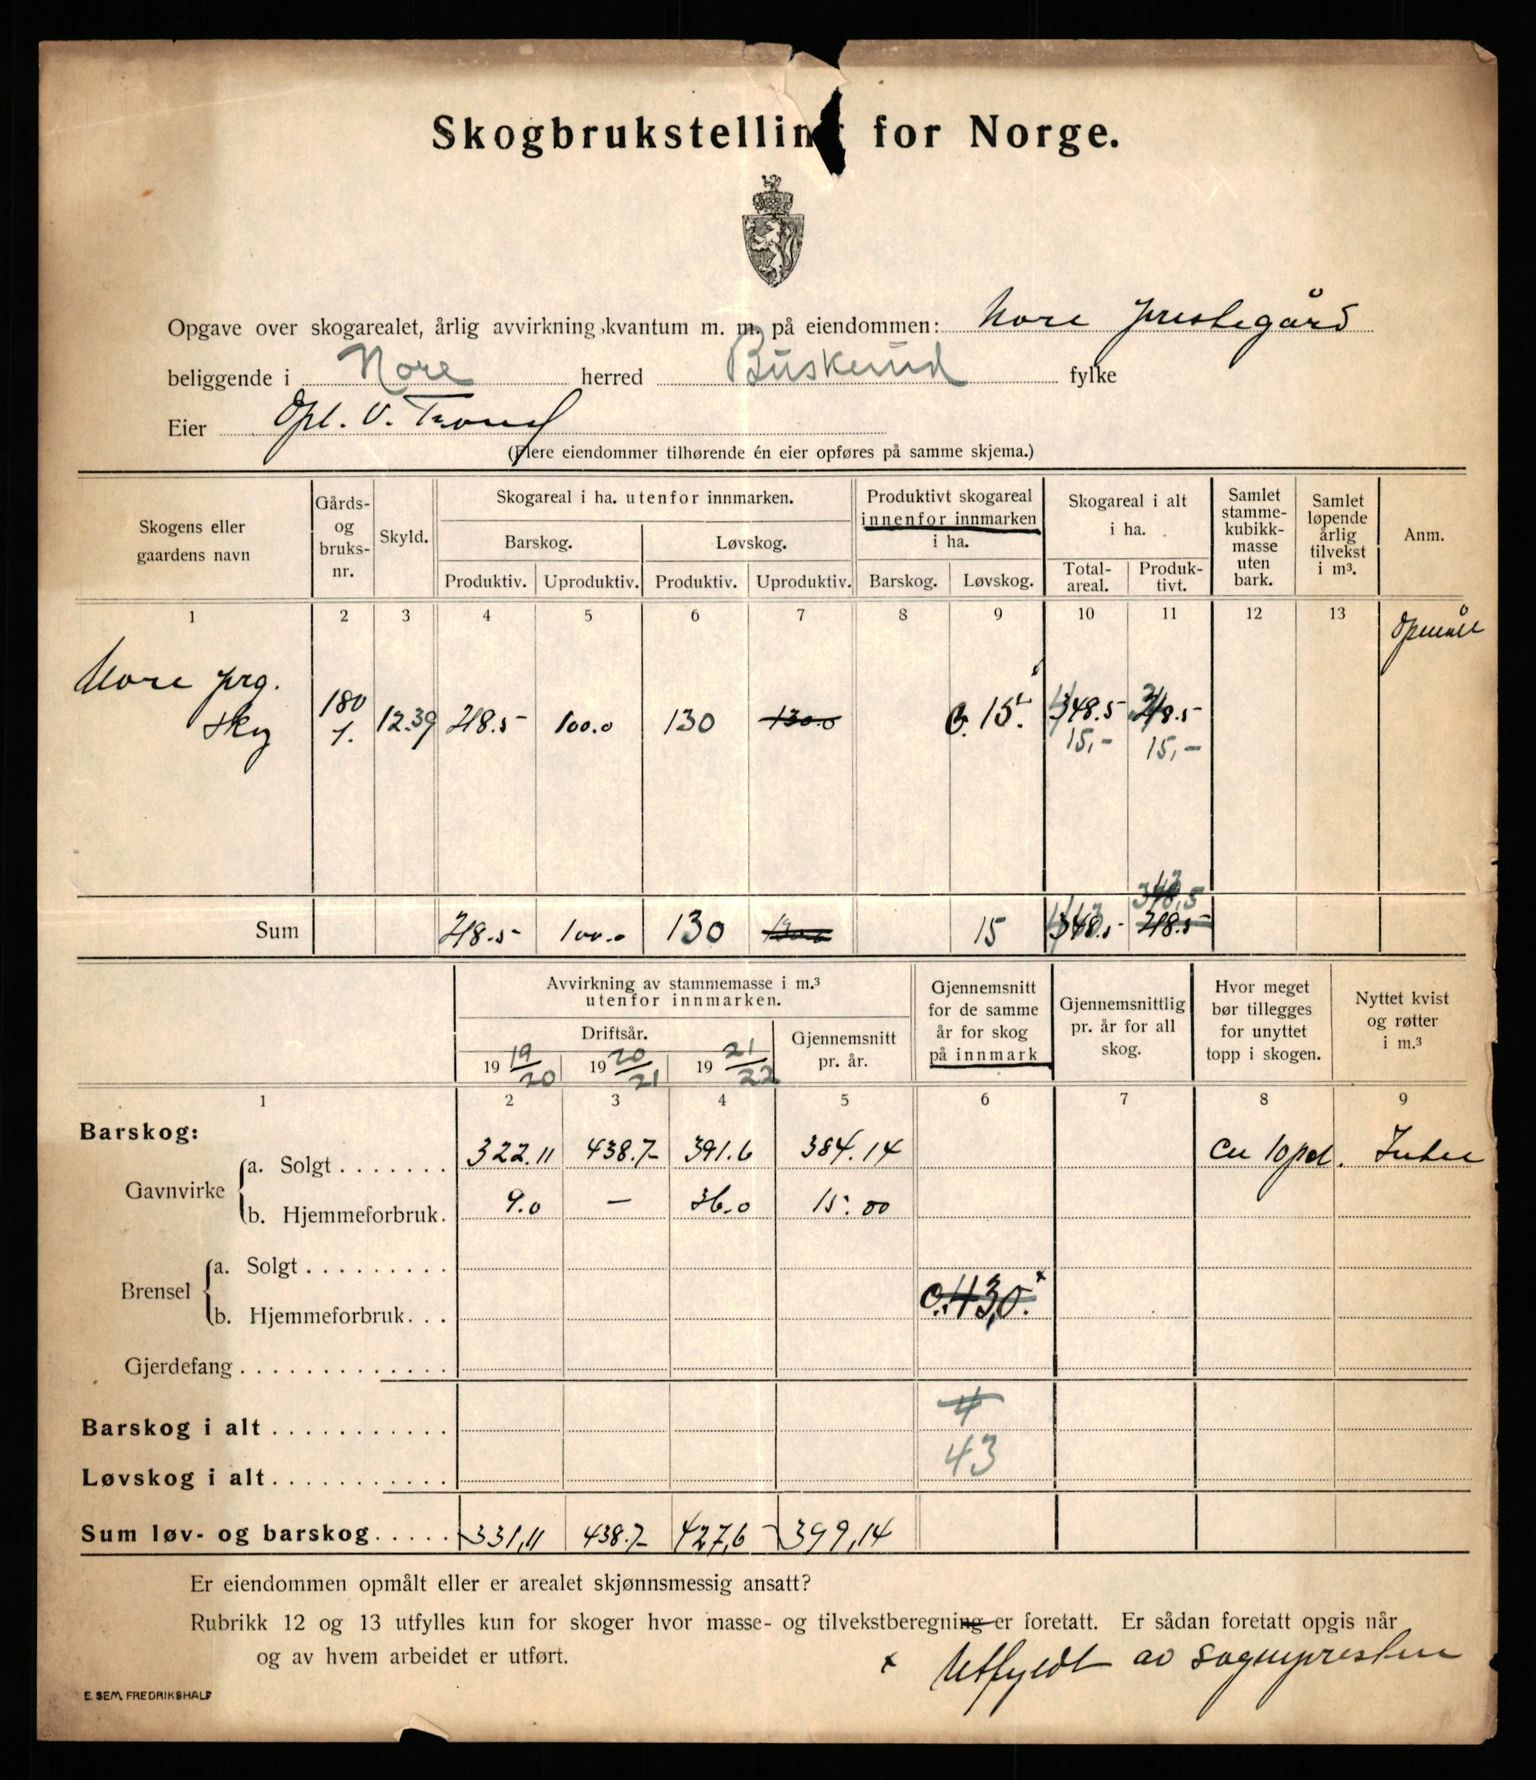 Skogbrukstelling for Norge.
Opgave over skogarealet, årlig avvirkning.kvantum m. m. på eiendommen: Nore prestegård
beliggende i Nore herred Buskerud fylke
Eier Opl. V. Trond
(Flere eiendommer tilhørende én eier opføres på samme skjema.)
Skogens eller gaardens navn | Gårds- og bruks-nr. | Skyld. | Skogareal i ha. utenfor innmarken. | Produktivt skogareal innenfor innmarken i ha. | Skogareal i alt i ha. | Samlet stamme-kubikk-masse uten bark. | Samlet løpende årlig tilvekst i m³. | Anm.
Barskog. | Løvskog.
Produktiv. | Uproduktiv. | Produktiv. | Uproduktiv. | Barskog. | Løvskog. | Total-areal. | Produk-tivt.
1 | 2 | 3 | 4 | 5 | 6 | 7 | 8 | 9 | 10 | 11 | 12 | 13
Opmålt
Nore prg.
skog | 180 1. | 12.39 | 218.5 | 100.0 | 130 | 130.0 | 15. | 348.5 | 218.5
15,- | 15,-
348,5
Sum | 218.5 | 100.0 | 130 | 130.0 | 15 | 348.5 | 218.5
Avvirkning av stammemasse i m.³ utenfor innmarken. | Gjennemsnitt for de samme år for skog på innmark | Gjennemsnittlig pr. år for all skog. | Hvor meget bør tillegges for unyttet topp i skogen. | Nyttet kvist og røtter i m.³
Driftsår. | Gjennemsnitt pr. år.
19 19/20 | 19 20/21 | 19 21/22
1 | 2 | 3 | 4 | 5 | 6 | 7 | 8 | 9
Barskog:
Gavnvirke
a. Solgt . . . . . . . 322.11 | 438.7- | 391.6 | 384.14 | ca 10 pct. | Intet
b. Hjemmeforbruk. 9.0 | — | 36.0 | 15.00
Brensel
a. Solgt . . . . . . . . .
b. Hjemmeforbruk. . . c. 43,0. x
Gjerdefang . . . . . . . . . . . . .
Barskog i alt . . . . . . . . . . . 4
Løvskog i alt . . . . . . . . . . . 43
Sum løv- og barskog . . . . . 331,11 | 438.7- | 427,6 | 399,14
Er eiendommen opmålt eller er arealet skjønnsmessig ansatt?
Rubrikk 12 og 13 utfylles kun for skoger hvor masse- og tilvekstberegning er foretatt. Er sådan foretatt opgis når
og av hvem arbeidet er utført.
x Utfyldt av sognepresten
E. SEM, FREDRIKSHALD